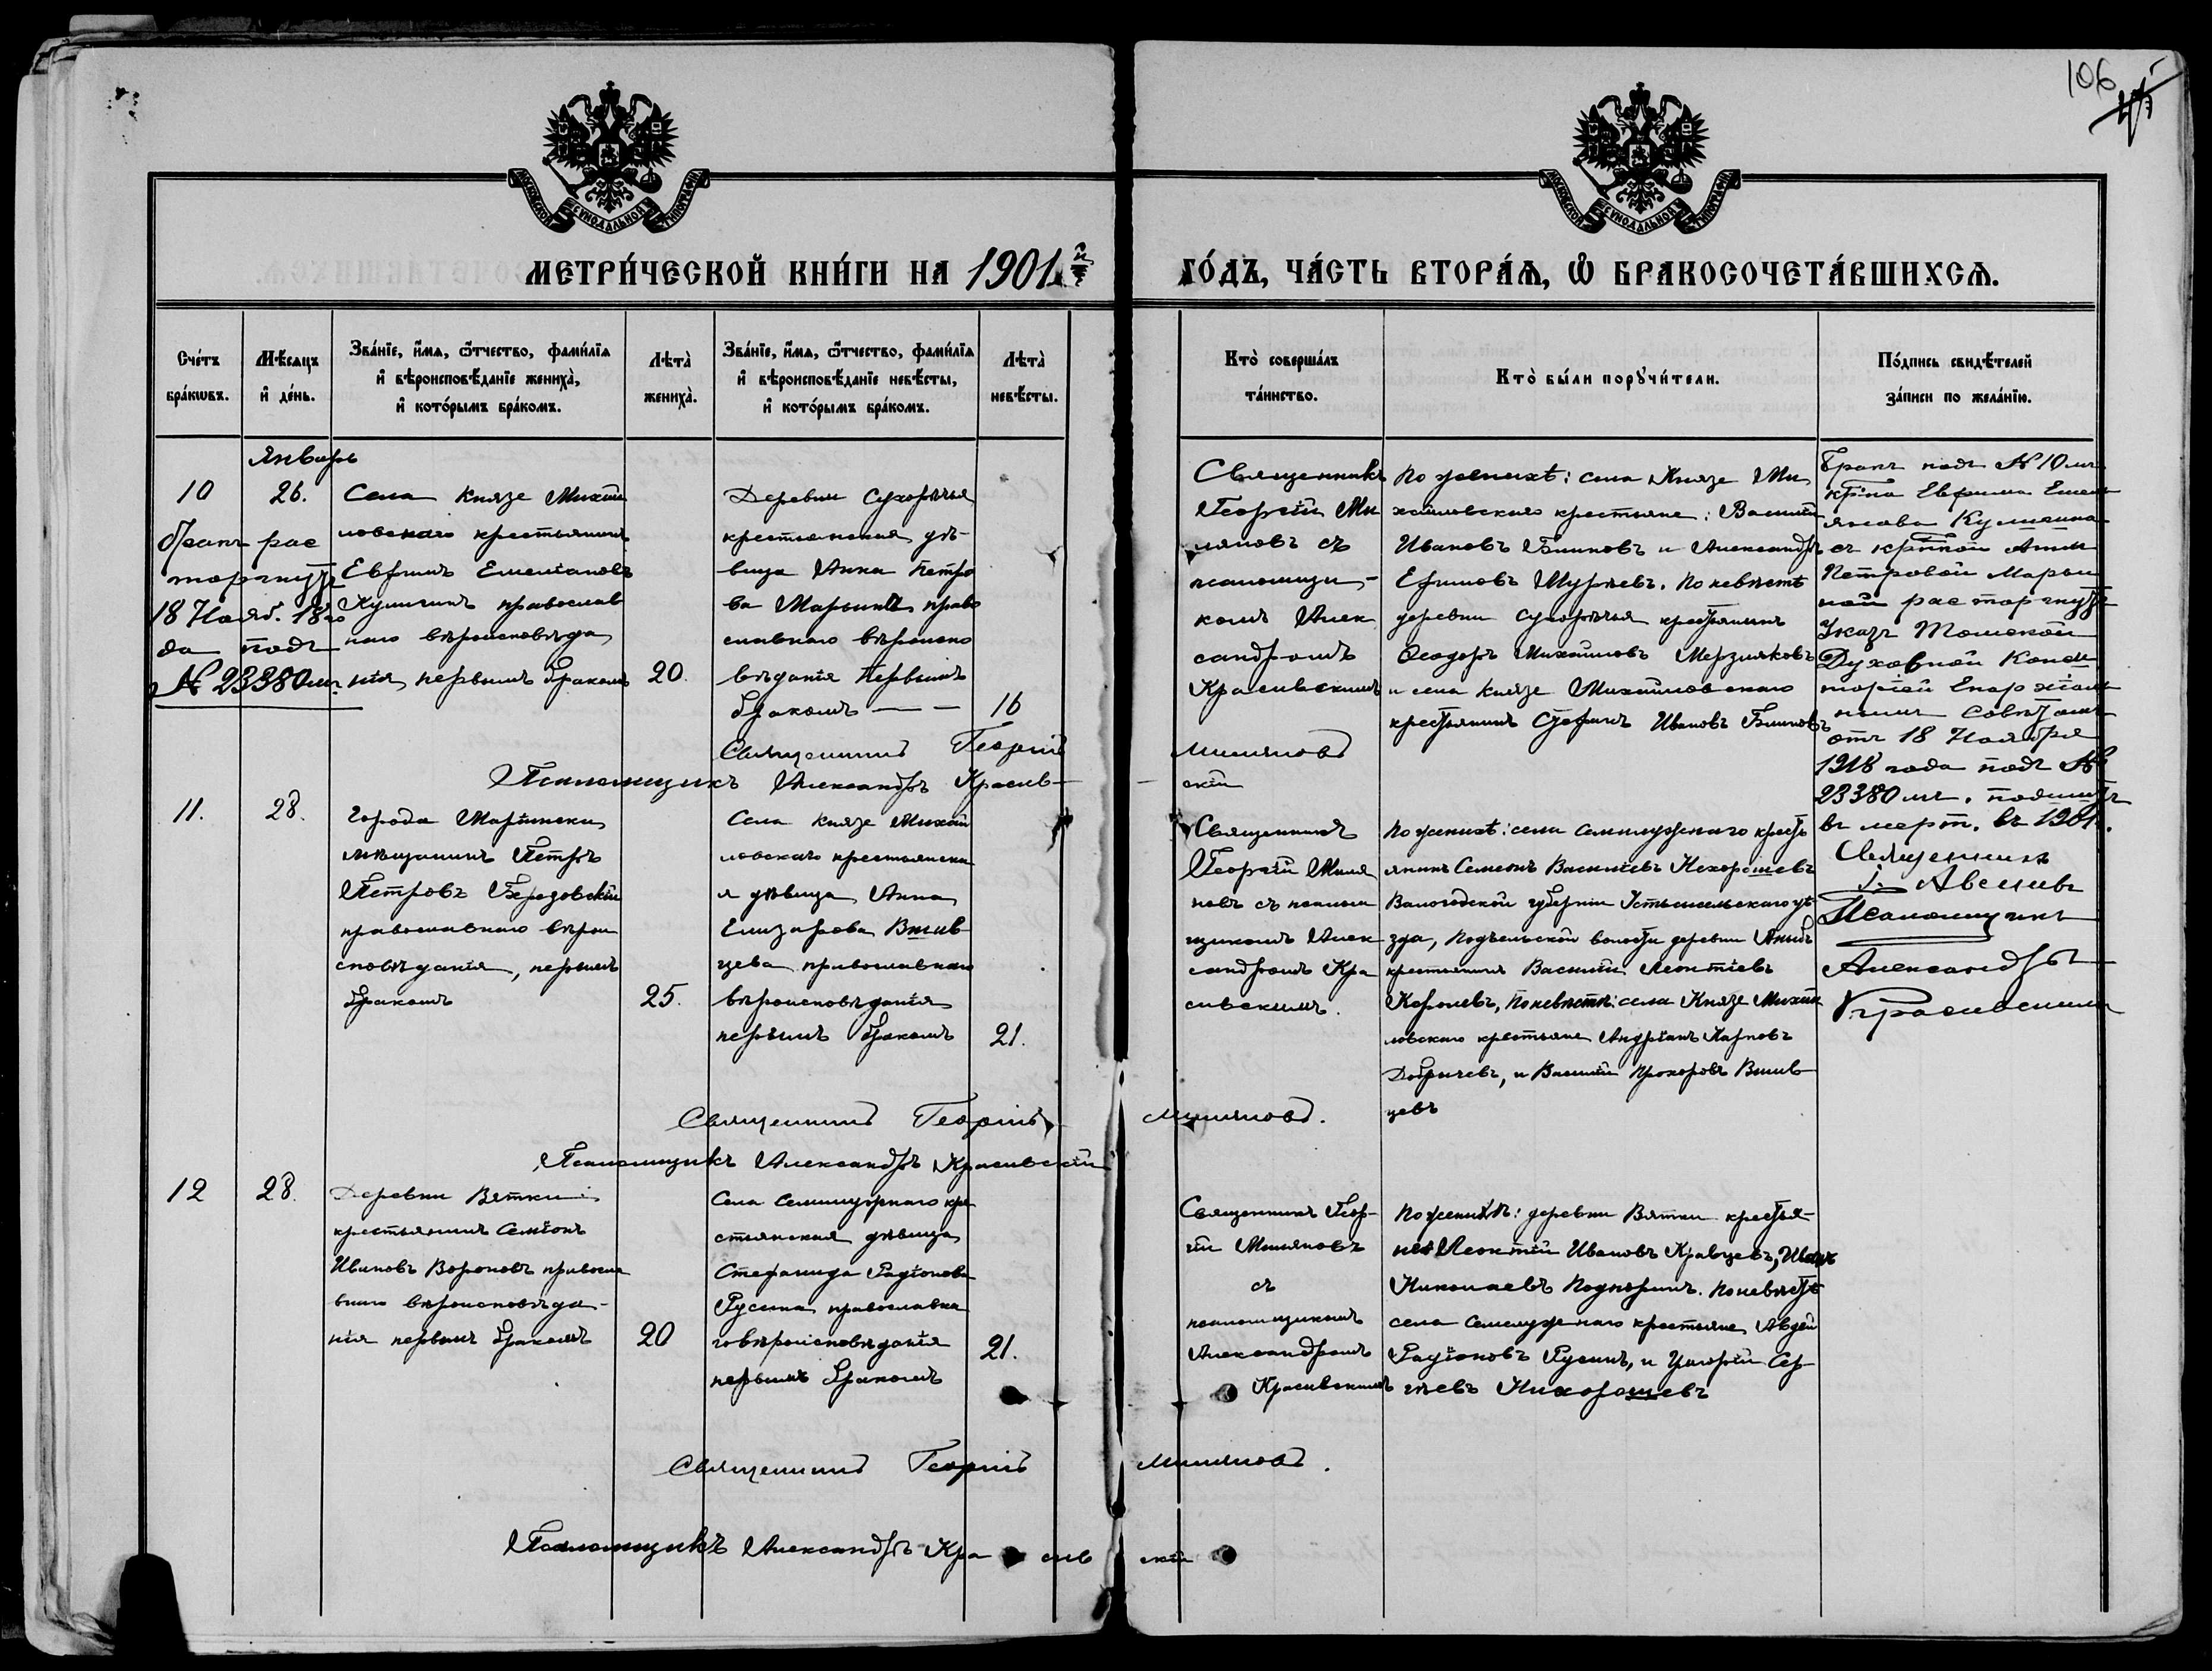 106
МОСКОВСКОЙ СѴНОДАЛЬНОЙ ТИПОГРАФІИ
МОСКОВСКОЙ СѴНОДАЛЬНОЙ ТИПОГРАФІИ
МЕТРИ́ЧЕСКОЙ КНИ́ГИ НА 1901й ГО́ДЪ, ЧА́СТЬ ВТОРА́Ѧ, Ѽ БРАКОСОЧЕТА́ВШИХСѦ.
Сче́тъ
бра́кѡвъ.
Мѣ́сяцъ
и҆ де́нь.
Зва́нїе, и҆́мѧ, ѻ҆́тчество, фами́лїѧ
и҆ вѣроисповѣ́данїе жениха̀,
и҆ кото́рымъ бра́комъ.
Лѣта̀
жениха̀.
Зва́нїе, и҆́мѧ, ѻ҆́тчество, фами́лїѧ
и҆ вѣроисповѣ́данїе невѣ́сты,
и҆ кото́рымъ бра́комъ.
Лѣта̀
невѣ́сты.
Кто̀ соверша́лъ
та́инство.
Кто̀ бы́ли порꙋчи́тели.
По́дпись свидѣ́телей
за́писи по жела́нїю.
Январь
10
бракъ рас
торгнутъ
18 Нояб. 18го
да подъ
№ 23380мъ.
26.
Села Князе Михаи
ловскаго крестьянинъ
Евфимъ Емеліановъ
Кулигинъ православ
наго вѣроисповѣда
нія, первымъ бракомъ
20.
Деревни Сухорѣчья
крестьянская дѣ-
вица Анна Петро
ва Марьина право
славнаго вѣроиспо
вѣданія первымъ
бракомъ — —
16
Священникъ
Георгій Ми
ляновъ съ
псаломщи-
комъ Алек
сандромъ
Красивскимъ
По женихѣ: села Князе Ми
хаиловскаго крестьяне: Василій
Ивановъ Блиновъ и Александръ
Ефимовъ Шуряевъ. По невѣстѣ
деревни Сухорѣчья крестьянинъ
Ѳеодоръ Михаиловъ Мерзляковъ
и села Князе Михаиловскаго
крестьянинъ Стефанъ Ивановъ Блиновъ
Бракъ подъ № 10мъ
кр̃на Евфима Емел
янова Кулигина
съ кр̃нкой Анной
Петровой Марьи
ной расторгнутъ
Указъ Томской
Духовной Конси
торіей Епархіал
нымъ Совѣтомъ
отъ 18 Ноября
1918 года подъ №
23380мъ. подшитъ
въ метр. въ 1901г.
Священникъ
Псаломщикъ
Александръ
Красивскій
Священникъ Георгій Миляновъ
Псаломщикъ Александръ Красивскій
11.
28.
Города Маріинска
мѣщанинъ Петръ
Петровъ Березовскій
православнаго вѣрои
сповѣданія, первымъ
бракомъ
25.
Села Князе Михаи
ловскаго крестьянска
я дѣвица Анна
Елизарова Вшив
цева православнаго
вѣроисповѣданія
первымъ бракомъ
21.
Священникъ
Георгій Миля
новъ съ псалом
щикомъ Алек
сандромъ Кра
сивскимъ.
По женихѣ: села Семилужнаго кресть
янинъ Семенъ Василіевъ Нехорошевъ
Вологодской губерніи Устьсысольскаго уѣ
зда, Подъельской волости деревни
крестьянинъ Василій Леонтіевъ
Королевъ, По невѣстѣ: села Князе Михаи
ловскаго крестьяне Андріанъ Карповъ
Добрычевъ, и Василій Прохоровъ Вшив
цевъ
Священникъ Георгій Миляновъ.
Псаломщикъ Александръ Красивскій
12
28.
Деревни Вятки
крестьянинъ Семіонъ
Ивановъ Вороновъ правосла
внаго вѣроисповѣда-
нія первымъ бракомъ
20
Села Семилужнаго кре
стьянская дѣвица
Стефанида Радіонова
Русина православна
го вѣроисповѣданія
первымъ бракомъ
21.
Священникъ Геор-
гій Миляновъ
съ
псаломщикомъ
Александромъ
Красивскимъ
По женихѣ: деревни Вятки крестья-
не Леонтій Ивановъ Кравцевъ, Иванъ
Николаевъ Подпоринъ. По невѣстѣ
села Семилужнаго крестьяне Авдей
Радіоновъ Русинъ, и Григорій Сер
гѣевъ Нихорошевъ
Священникъ Георгій Миляновъ.
Псаломщикъ Александръ Красивскій